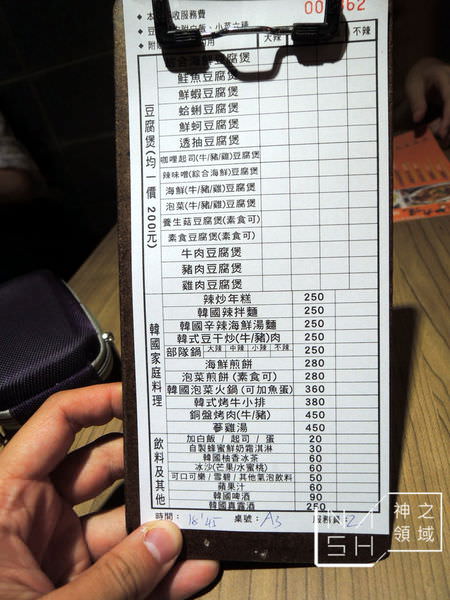 收服務費
大辣
不辣
豆腐煲(均一價200元)
海鮮豆腐煲
鮭魚豆腐煲
鮮蝦豆腐煲
蛤蜊豆腐煲
鮮蚵豆腐煲
透抽豆腐煲
咖哩起司(牛/豬/雞)豆腐煲
辣味噌(綜合海鮮)豆腐煲
海鮮(牛/豬/雞)豆腐煲
泡菜(牛/豬/雞)豆腐煲
養生菇豆腐煲(素食可)
素食豆腐煲(素食可)
牛肉豆腐煲
豬肉豆腐煲
雞肉豆腐煲
韓國家庭料理
辣炒年糕 250
韓國辣拌麵 250
韓國辛辣海鮮湯麵 250
韓式豆干炒(牛/豬)肉 250
部隊鍋 大辣 中辣 小辣 不辣 250
海鮮煎餅 280
泡菜煎餅 (素食可) 280
韓國泡菜火鍋(可加魚蛋) 360
韓式烤牛小排 380
銅盤烤肉(牛/豬) 450
蔘雞湯 450
飲料及其他
加白飯 / 起司 / 蛋 20
自製蜂蜜鮮奶霜淇淋 30
韓國柚香冰茶 60
冰沙(芒果/水蜜桃) 60
可口可樂/雪碧/其他氣泡飲料 50
蘋果汁 60
韓國啤酒 90
韓國真露酒 250
時間: 18:45 桌號: A3 服務員: 2
SH 神之領域